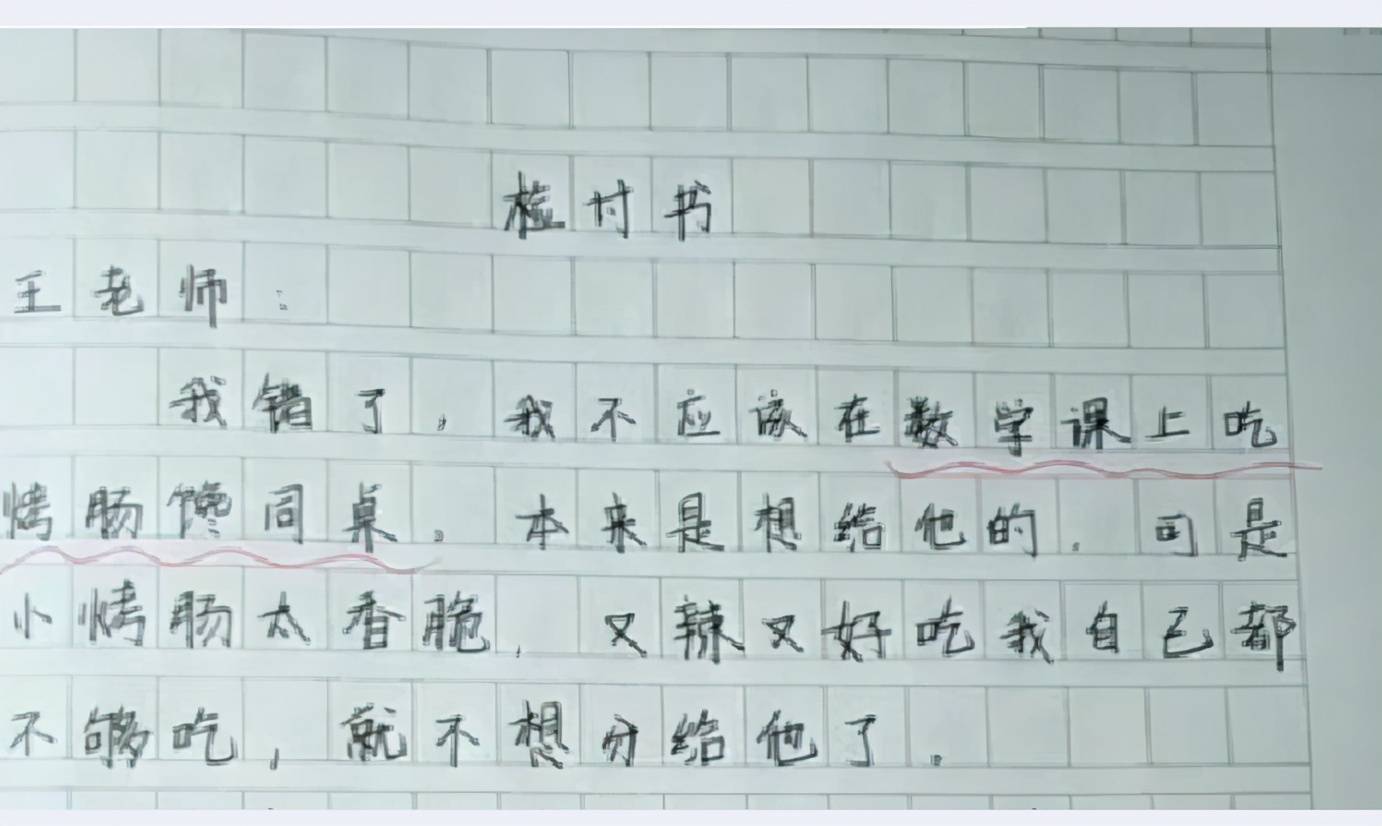 检讨书
王老师:
我错了,我不应该在数学课上吃
烤肠馋同桌。本来是想给他的.可是
小烤肠太香脆,又辣又好吃我自己都
不够吃,就不想分给他了.